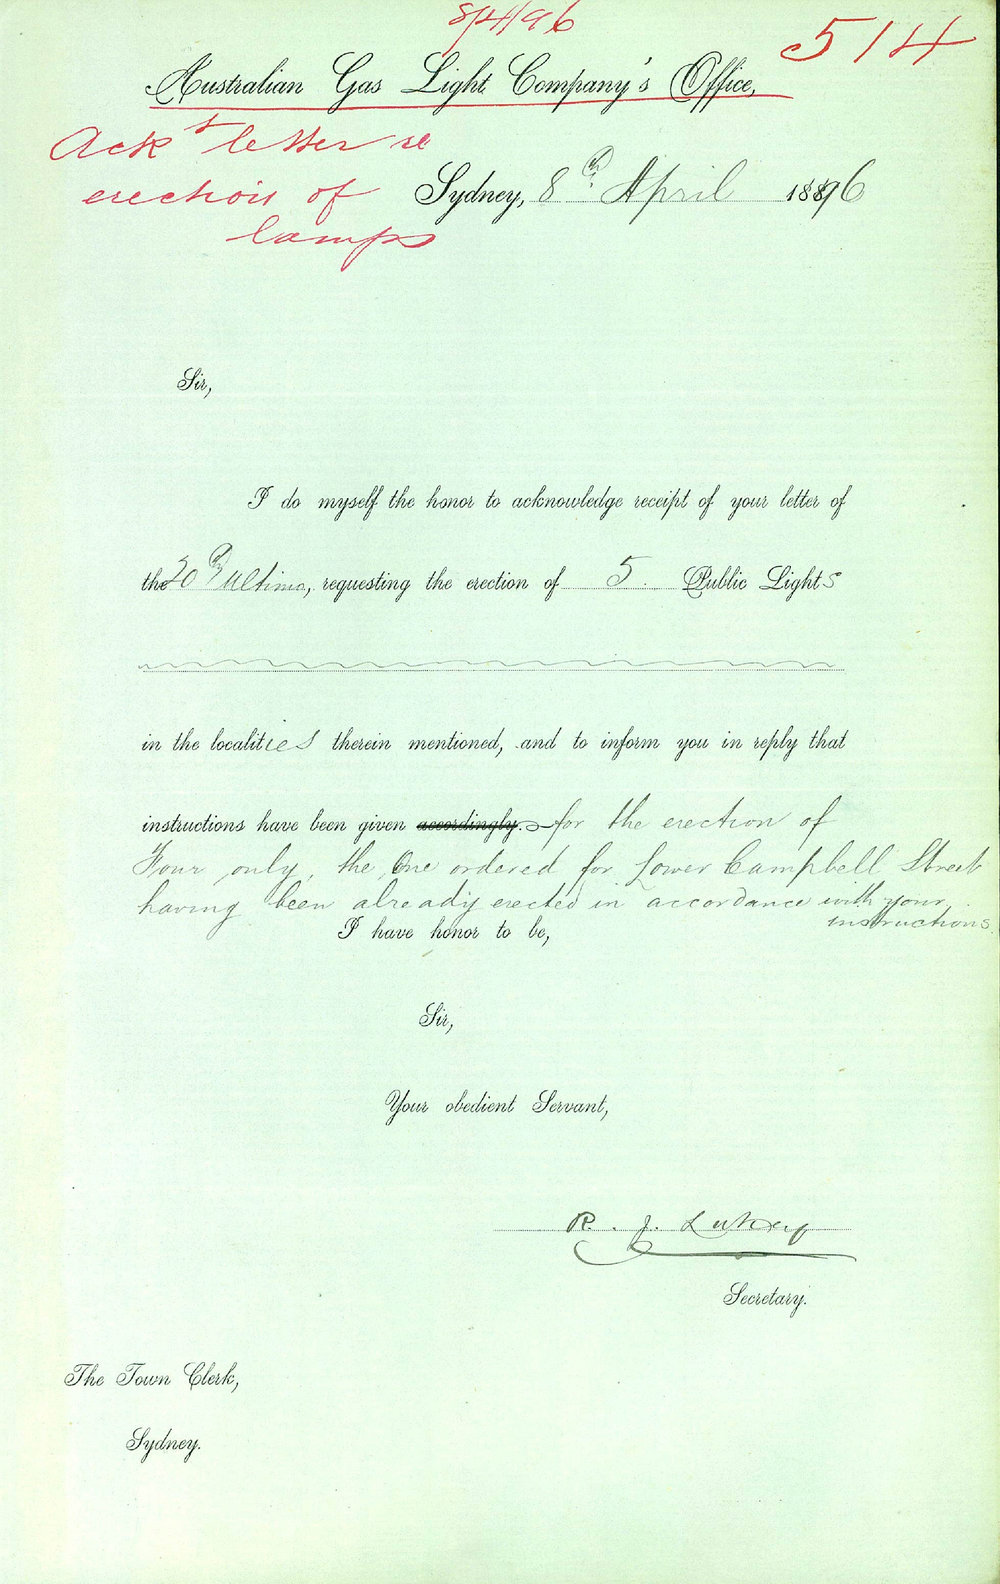 8/4/96
514
Australian Gas Light Company's Office,
Ackt letter re
erection of
lamps
Sydney, 8th April 1896
Sir,
I do myself the honor to acknowledge receipt of your letter of
the 30th Ultimo, requesting the erection of 5. Public Lights
in the localities therein mentioned, and to inform you in reply that
instructions have been given accordingly. for the erection of
Four only, the One ordered for Lower Campbell Street
having been already erected in accordance with your
instructions.
I have honor to be,
Sir,
Your obedient Servant,
R. J. Lukey
Secretary.
The Town Clerk,
Sydney.